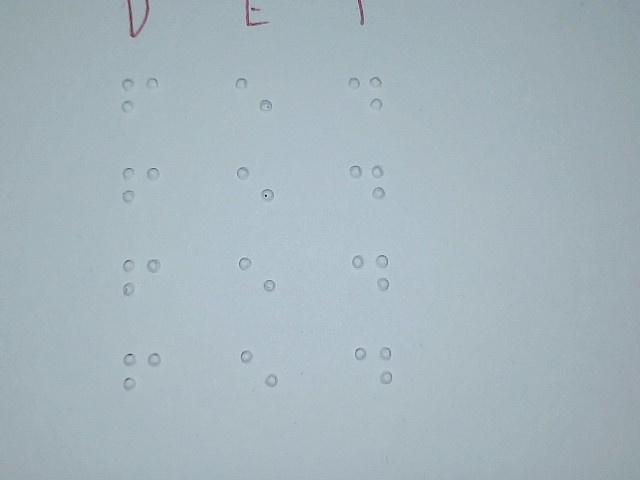 D E
⠋ ⠑ ⠙
⠋ ⠑ ⠙
⠋ ⠑ ⠙
⠋ ⠑ ⠙